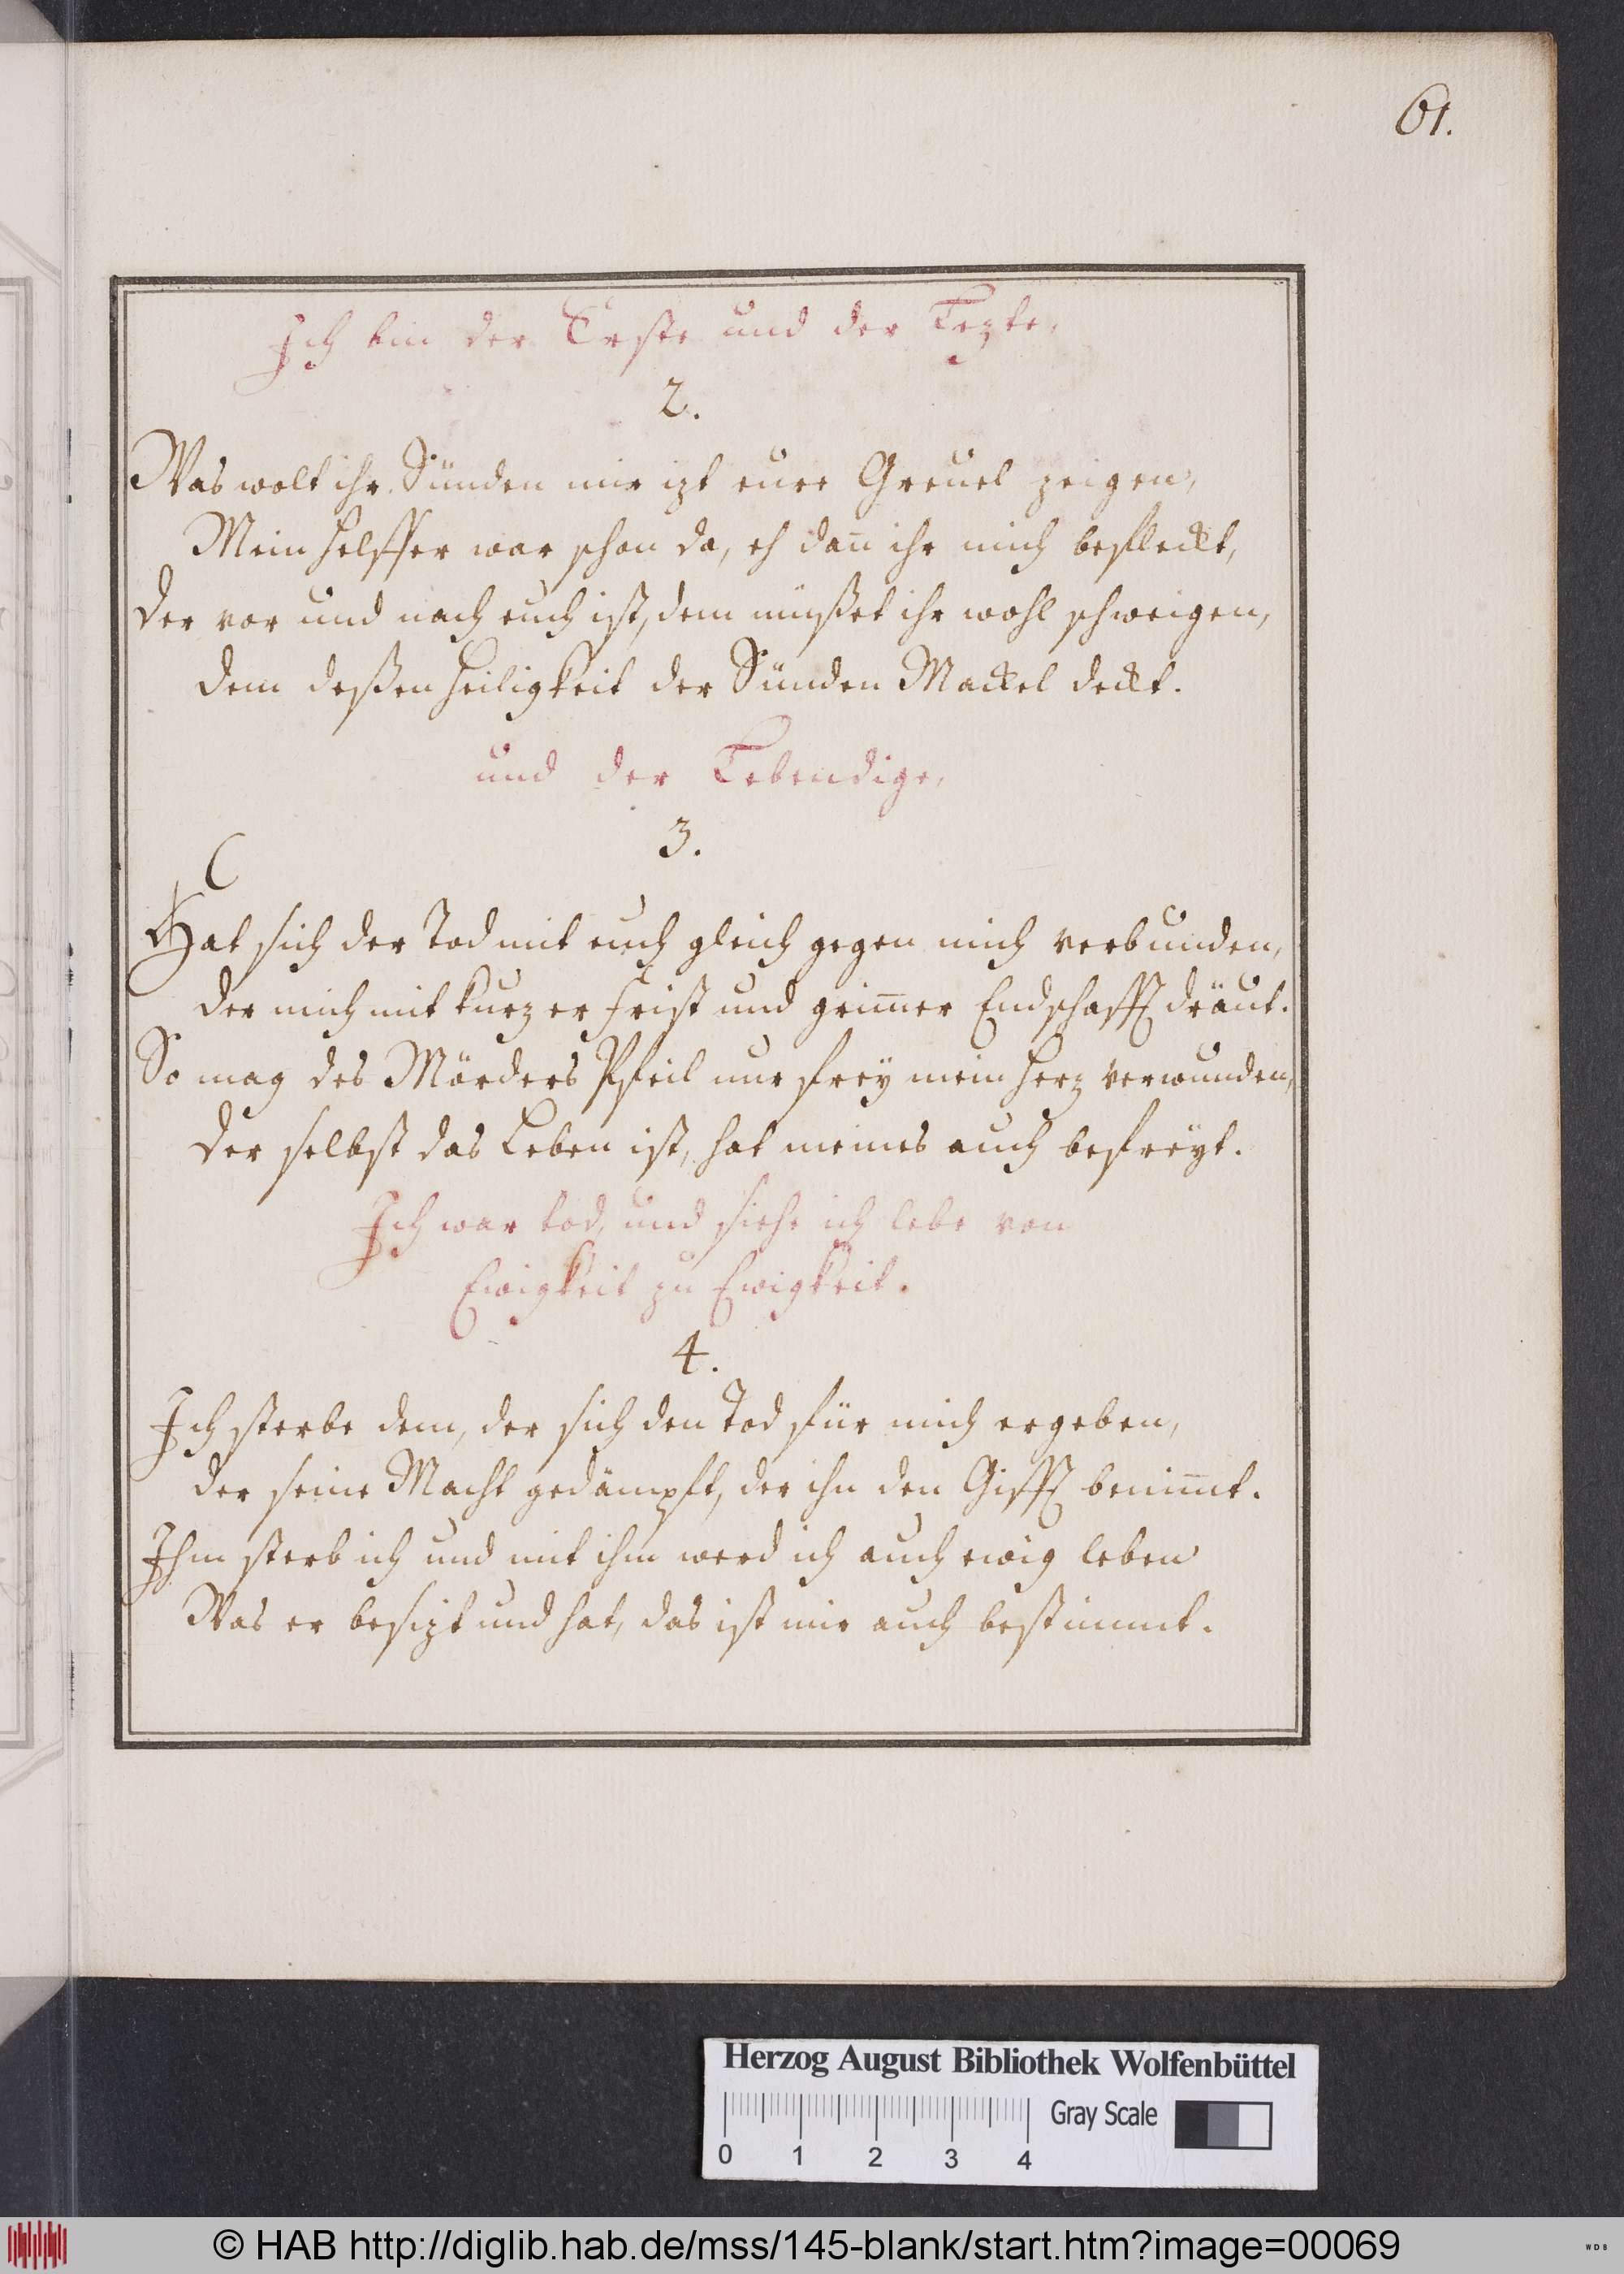 61.
Ich bin der Erste und der Lezte,
2.
Was wolt ihr Sünden mir izt eure Greuel zeigen,
Mein Helffer war schon da, eh dan̅ ihr mich befleckt,
Der vor und nach euch ist, dem müßet ihr wohl schweigen,
Dem deßen Heiligkeit der Sünden Mackel deckt.
und der Lebendige,
3.
Hat sich der Tod mit euch gleich gegen mich verbunden,
Der mich mit kurzer Frist und grim̅er Endschafft dräut.
So mag des Mörders Pfeil nur frey mein Herz verwunden,
Der selbst das Leben ist, hat meines auch befreyt.
Ich war tod, und siehe ich lebe von
Ewigkeit zu Ewigkeit.
4.
Ich sterbe dem, der sich den Tod für mich ergeben,
Der seine Macht gedämpft, der ihn den Gifft benim̅t.
Ihm sterb ich und mit ihm werd ich auch ewig leben
Was er besizt und hat, das ist mir auch bestimmt.
Herzog August Bibliothek Wolfenbüttel
Gray Scale
0 1 2 3 4
© HAB http://diglib.hab.de/mss/145-blank/start.htm?image=00069
WDB